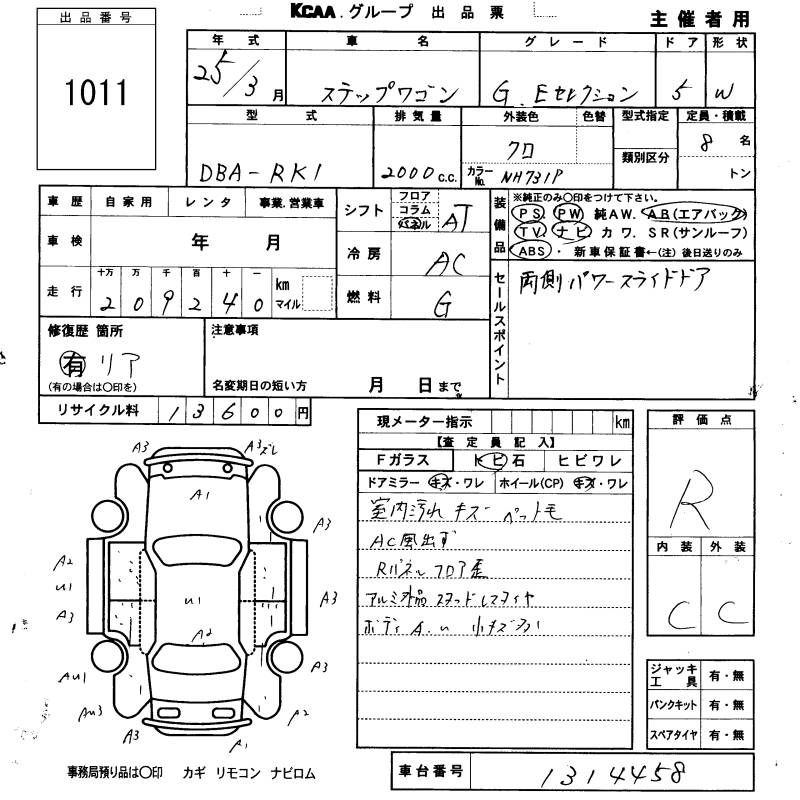 KCAA.グループ 出品票
主催者用
出品番号
1011
年式 車名 グレード ドア 形状
25/3月 ステップワゴン G.Eセレクション 5 W
型式 排気量 外装色 色替 型式指定 定員・積載
DBA-RK1 2000c.c. クロ カラーNo. NH731P 類別区分 8名 トン
車歴 自家用 レンタ 事業.営業車
車検 年 月
走行 十万 万 千 百 十 一 km マイル
2 0 9 2 4 0
シフト フロア コラム パネル AT
冷房 AC
燃料 G
装備品 ※純正のみ○印をつけて下さい。
PS. PW 純AW. AB(エアバック)
TV. ナビ カワ. SR(サンルーフ)
ABS ・ 新車保証書←(注)後日送りのみ
セールスポイント 両側パワースライドドア
修復歴 箇所
有 リア
(有の場合は○印を)
注意事項
名変期日の短い方 月 日まで
リサイクル料 13600円
現メーター指示 km
【査定員記入】
Fガラス トビ石 ヒビワレ
ドアミラー キズ・ワレ ホイール(CP) キズ・ワレ
室内汚れ キズ ペット毛
AC風出ず
Rパネル フロア歪
アルミ欠品 スタッドレスタイヤ
ボディ A.u 小キズ
評価点
R
内装 外装
C C
ジャッキ工具 有・無
パンクキット 有・無
スペアタイヤ 有・無
A3 A3ズレ
A1
A3
A2
U1
A3
U1
A3
A2
AU1
A3
AU3
A2
A3
A1
事務局預り品は○印 カギ リモコン ナビロム
車台番号 1314458